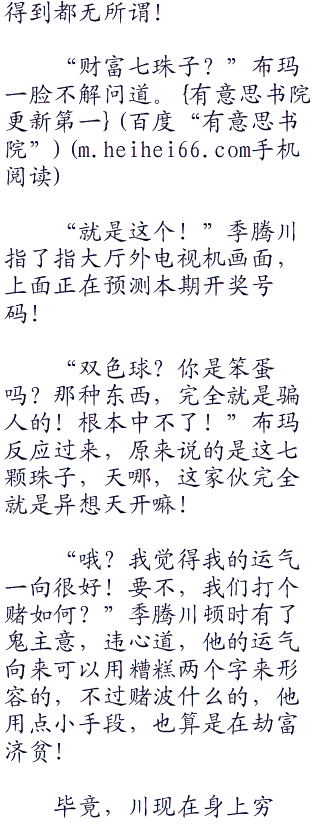 得到都无所谓！
“财富七珠子？”布玛
一脸不解问道。{有意思书院
更新第一}(百度“有意思书
院”)(m.heihei66.com手机
阅读)
“就是这个！”季腾川
指了指大厅外电视机画面，
上面正在预测本期开奖号
码！
“双色球？你是笨蛋
吗？那种东西，完全就是骗
人的！根本中不了！”布玛
反应过来，原来说的是这七
颗珠子，天哪，这家伙完全
就是异想天开嘛！
“哦？我觉得我的运气
一向很好！要不，我们打个
赌如何？”季腾川顿时有了
鬼主意，违心道，他的运气
向来可以用糟糕两个字来形
容的，不过赌波什么的，他
用点小手段，也算是在劫富
济贫！
毕竟，川现在身上穷